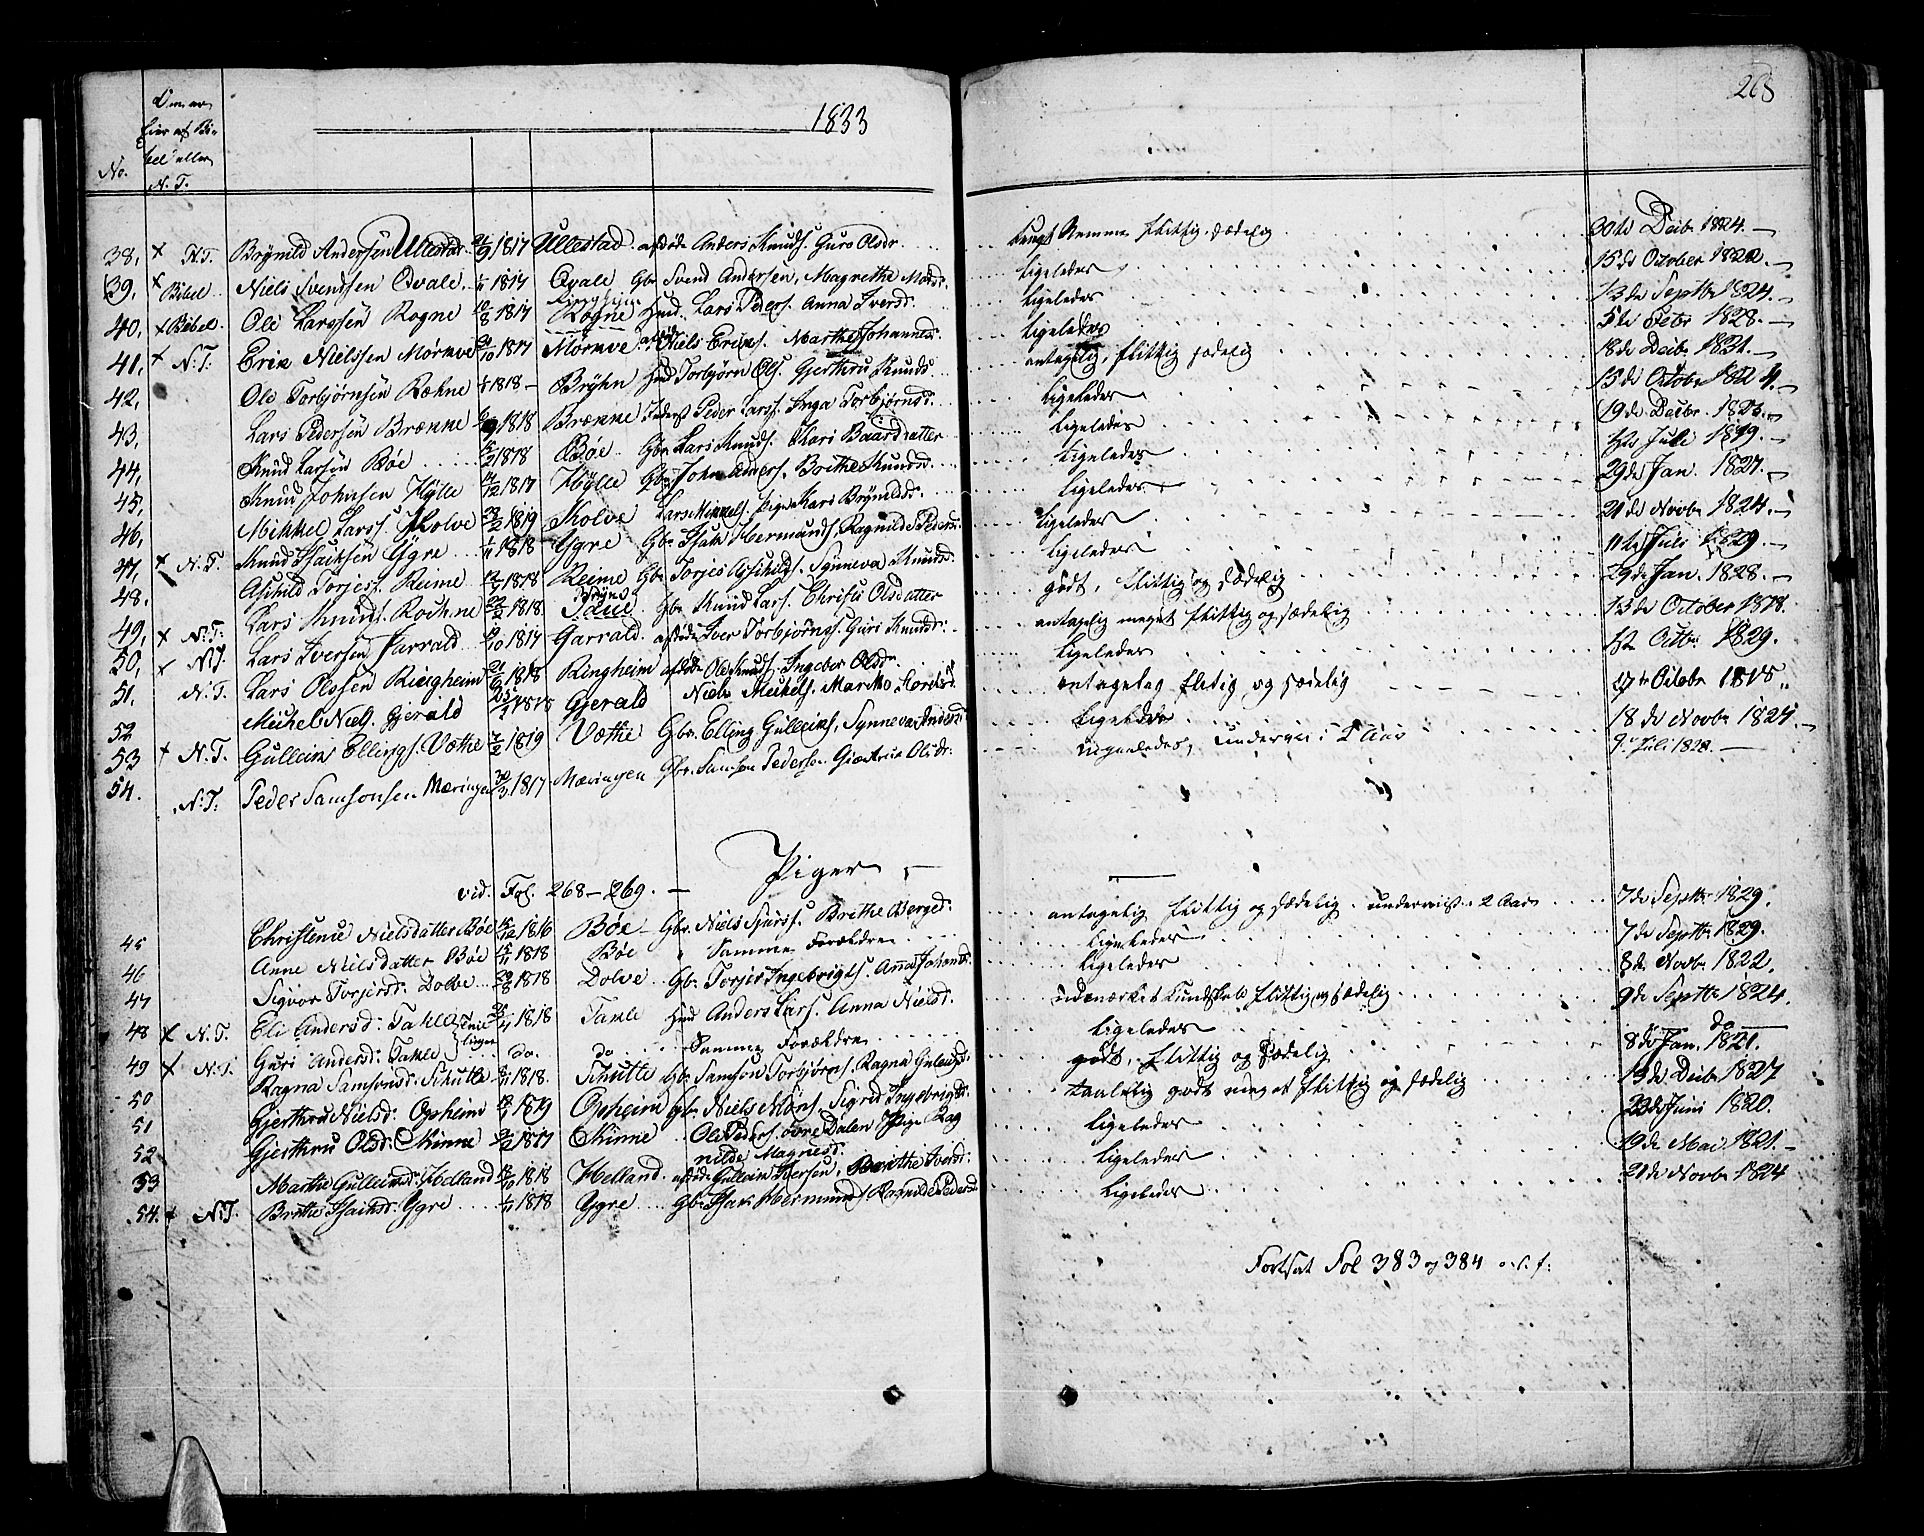 1833
268
No.
Om er
Eier af Bi-
bel eller
N. T.
38, × N.T. Brÿnild Andersen Ullestad 1817 Ullestad. afdøde Anders Knuds. Guro Olsdr. flittig, sædelig 30te Decbr 1824.
39, × Bibel Niels Svendsen Qvale 1817 Qvale Gbr. Svend Andersen, Magrethe Ligeledes 15de October 1822.
40, × Bibel. Ole Larssen Rogne 10/8 1817 Ringheim Rogne Hmd. Lars Peders. Anna Iversd. Ligeledes 13de Septbr 1824.
41, × N.T. Eric Nielssen Mørkve 1817 Mørkve. Niels Erics. Marthe Johannesd. Ligeledes 5te Febr 1828.
42, Ole Torbjørnsen Bæhne 1818 Brÿhn Hmd Torbjørn Ols. Gjerthru Knuds. antagelig, flittig sædelig 18de Decbr 1831.
43, Lars Pedersen Brænne 1818 Brænne Peder Larss. Inga Torbjørnsd. Ligeledes 15de Octobr 1824.
44, Knud Larsen Bøe 1818 Bøe Gbr. Lars Knuds. Kari Baardsdatter Ligeledes 19de Decbr. 1823.
45, Knud Johnsen Hÿlle 1817 Hÿlle Gbr. John Brithe Knudsd. Ligeledes Juli 1819.
46, Mikkel Larss. Skolve 1819 Skolve Lars Mikkels. Pige Kari Brÿnilds. Ligeledes 29de Jan. 1827.
47, × N.T. Knud Isaksen Ÿgre 1/11 1818 Ÿgre Gbr. Isak Hermunds. Ragnilde Peders. Ligeledes 21de Novbr 1824.
48. Aschild Torjes. Reime 1818 Reime Gbr. Torjes Aschilds. Synneva Knudsd. Ligeledes 11te Juli 1829.
49, × N.T. Lars Knuds. Rochne 1818 Gbr. Knud Lars. Christi Olsdatter godt, flittig og sædelig 29de Jan. 1828.
50, × N.T. Lars Iversen Garrald 1817 Garrald. afdøde Iver Torbjørns. Guri Knudsd. antagelig meget flittig og sædelig 13de October 1818.
51, N.T. Lars Olssen Ringheim 1818 Ringheim afdøde Ole Knuds. Ingebor Olsdr. Ligeledes 1te Octbr. 1829.
52 Michel Niels. Gjerald 1818 Gjerald Niels Michels. Martha antagelig flittig og sædelig 17de Octobr 1818.
53 × N.T. Gullein Ellings. Væthe 1819 Væthe Gbr. Elling Gulleins. Synneva Andersd. Ligeledes 18de Novbr 1824.
54. N.T. Peder Samsonsen Mæringen 30/3 1817 Mæringen Gbr. Samson Pedersen. Olsdr. Ligeledes, underviist i 2 Aar 9de Juli 1828.
Piger
vid. Fol. 268–269.
45 Christense Nielsdatter Bøe 1816 Bøe Gbr. Niels Brithe Børgesd. antagelig flittig og sædelig. underviist 2 Aar 7de Septbr 1829.
46 Anne Nielsdatter Bøe 15/11 1818 Bøe Samme Forældre Ligeledes 7de Septbr 1829.
47 Sigvor Torjersd: Dolve 1818 Dolve Gbr. Torjer Ingebrigts. Anna Johansd. Ligeledes 8de Novbr 1822.
48 × N.T. Eli Andersd: Takle Tvil- 1818 Takle Hmd Anders Lars. Anna Nielsd: udmærket Kundskab flittig og sædelig 9de Septbr 1824.
49 × N.T. Guri Andersd: Takle linger do. do Samme Forældre Ligeledes do
50 Ragna Samsonsd: Schutle 1818. Schutle Gbr. Samson Torbjørns. Ragna godt, flittig og sædelig 8de Jan. 1821.
51 Gjerthru Nielsd: Opheim 1819 Opheim Gbr. Niels Møns. Sigrid Ingebrigtsd: taalelig godt meget flittig og sædelig 13de Decbr 1827
52 Gjerthru Olsd: Kinne 1817 Kinne Ole Peders. øvre Dalen Pige Rag Ligeledes 23de Juni 1820.
nilde Magnesd:
53 Marthe Gulleinsd: Helland 1818 Helland afdøde Gullein Iversen, Brithe Iversd: Ligeledes 19de Mai 1821.
54. × N.T. Brithe Isaksd. Ygre 1/11 1818 Ygre Gbr. Isak Hermunds. Ragnilde Pedersd Ligeledes 21de Novbr 1824
Fortsat Fol 383 og 384 o.s.f: